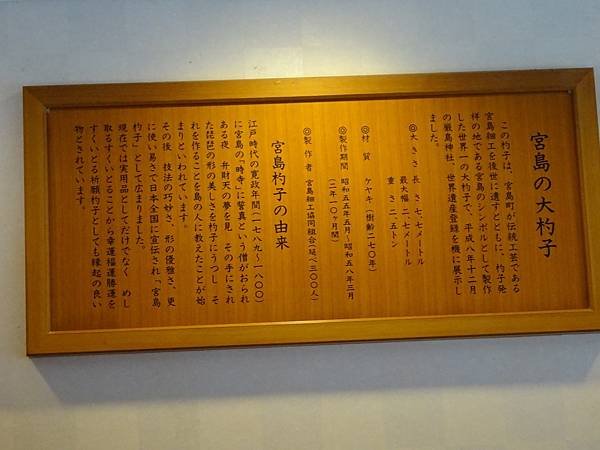 宮島の大杓子
この杓子は、宮島町が伝統工芸である
宮島細工を後世に遺すとともに、杓子発
祥の地である宮島のシンボルとして製作
した世界一の大杓子で、平成八年十二月
の厳島神社、世界遺産登録を機に展示し
ました。
◎大きさ 長さ 七、七メートル
最大幅 二、七メートル
重さ 二、五トン
◎材質 ケヤキ(樹齢二七〇年)
◎製作期間 昭和五五年五月~昭和五八年三月
(二年一〇ヶ月間)
◎製作者 宮島細工協同組合(延べ三〇〇人)
宮島杓子の由来
江戸時代の寛政年間(一七八九~一八〇〇)
に宮島の「時寺」に誓真という僧がおられ
ある夜 弁財天の夢を見 その手にされ
た琵琶の形の美しさを杓子にうつし そ
れを作ることを島の人に教えたことが始
まりといわれています。
その後 技法の巧妙さ、形の優雅さ、更
に使い易さで日本全国に宣伝され「宮島
杓子」として広まりました。
現在では実用品としてだけでなく めし
取る(すくいとる)ことから幸運福運勝運を
すくいとる祈願杓子としても縁起の良い
物とされています。